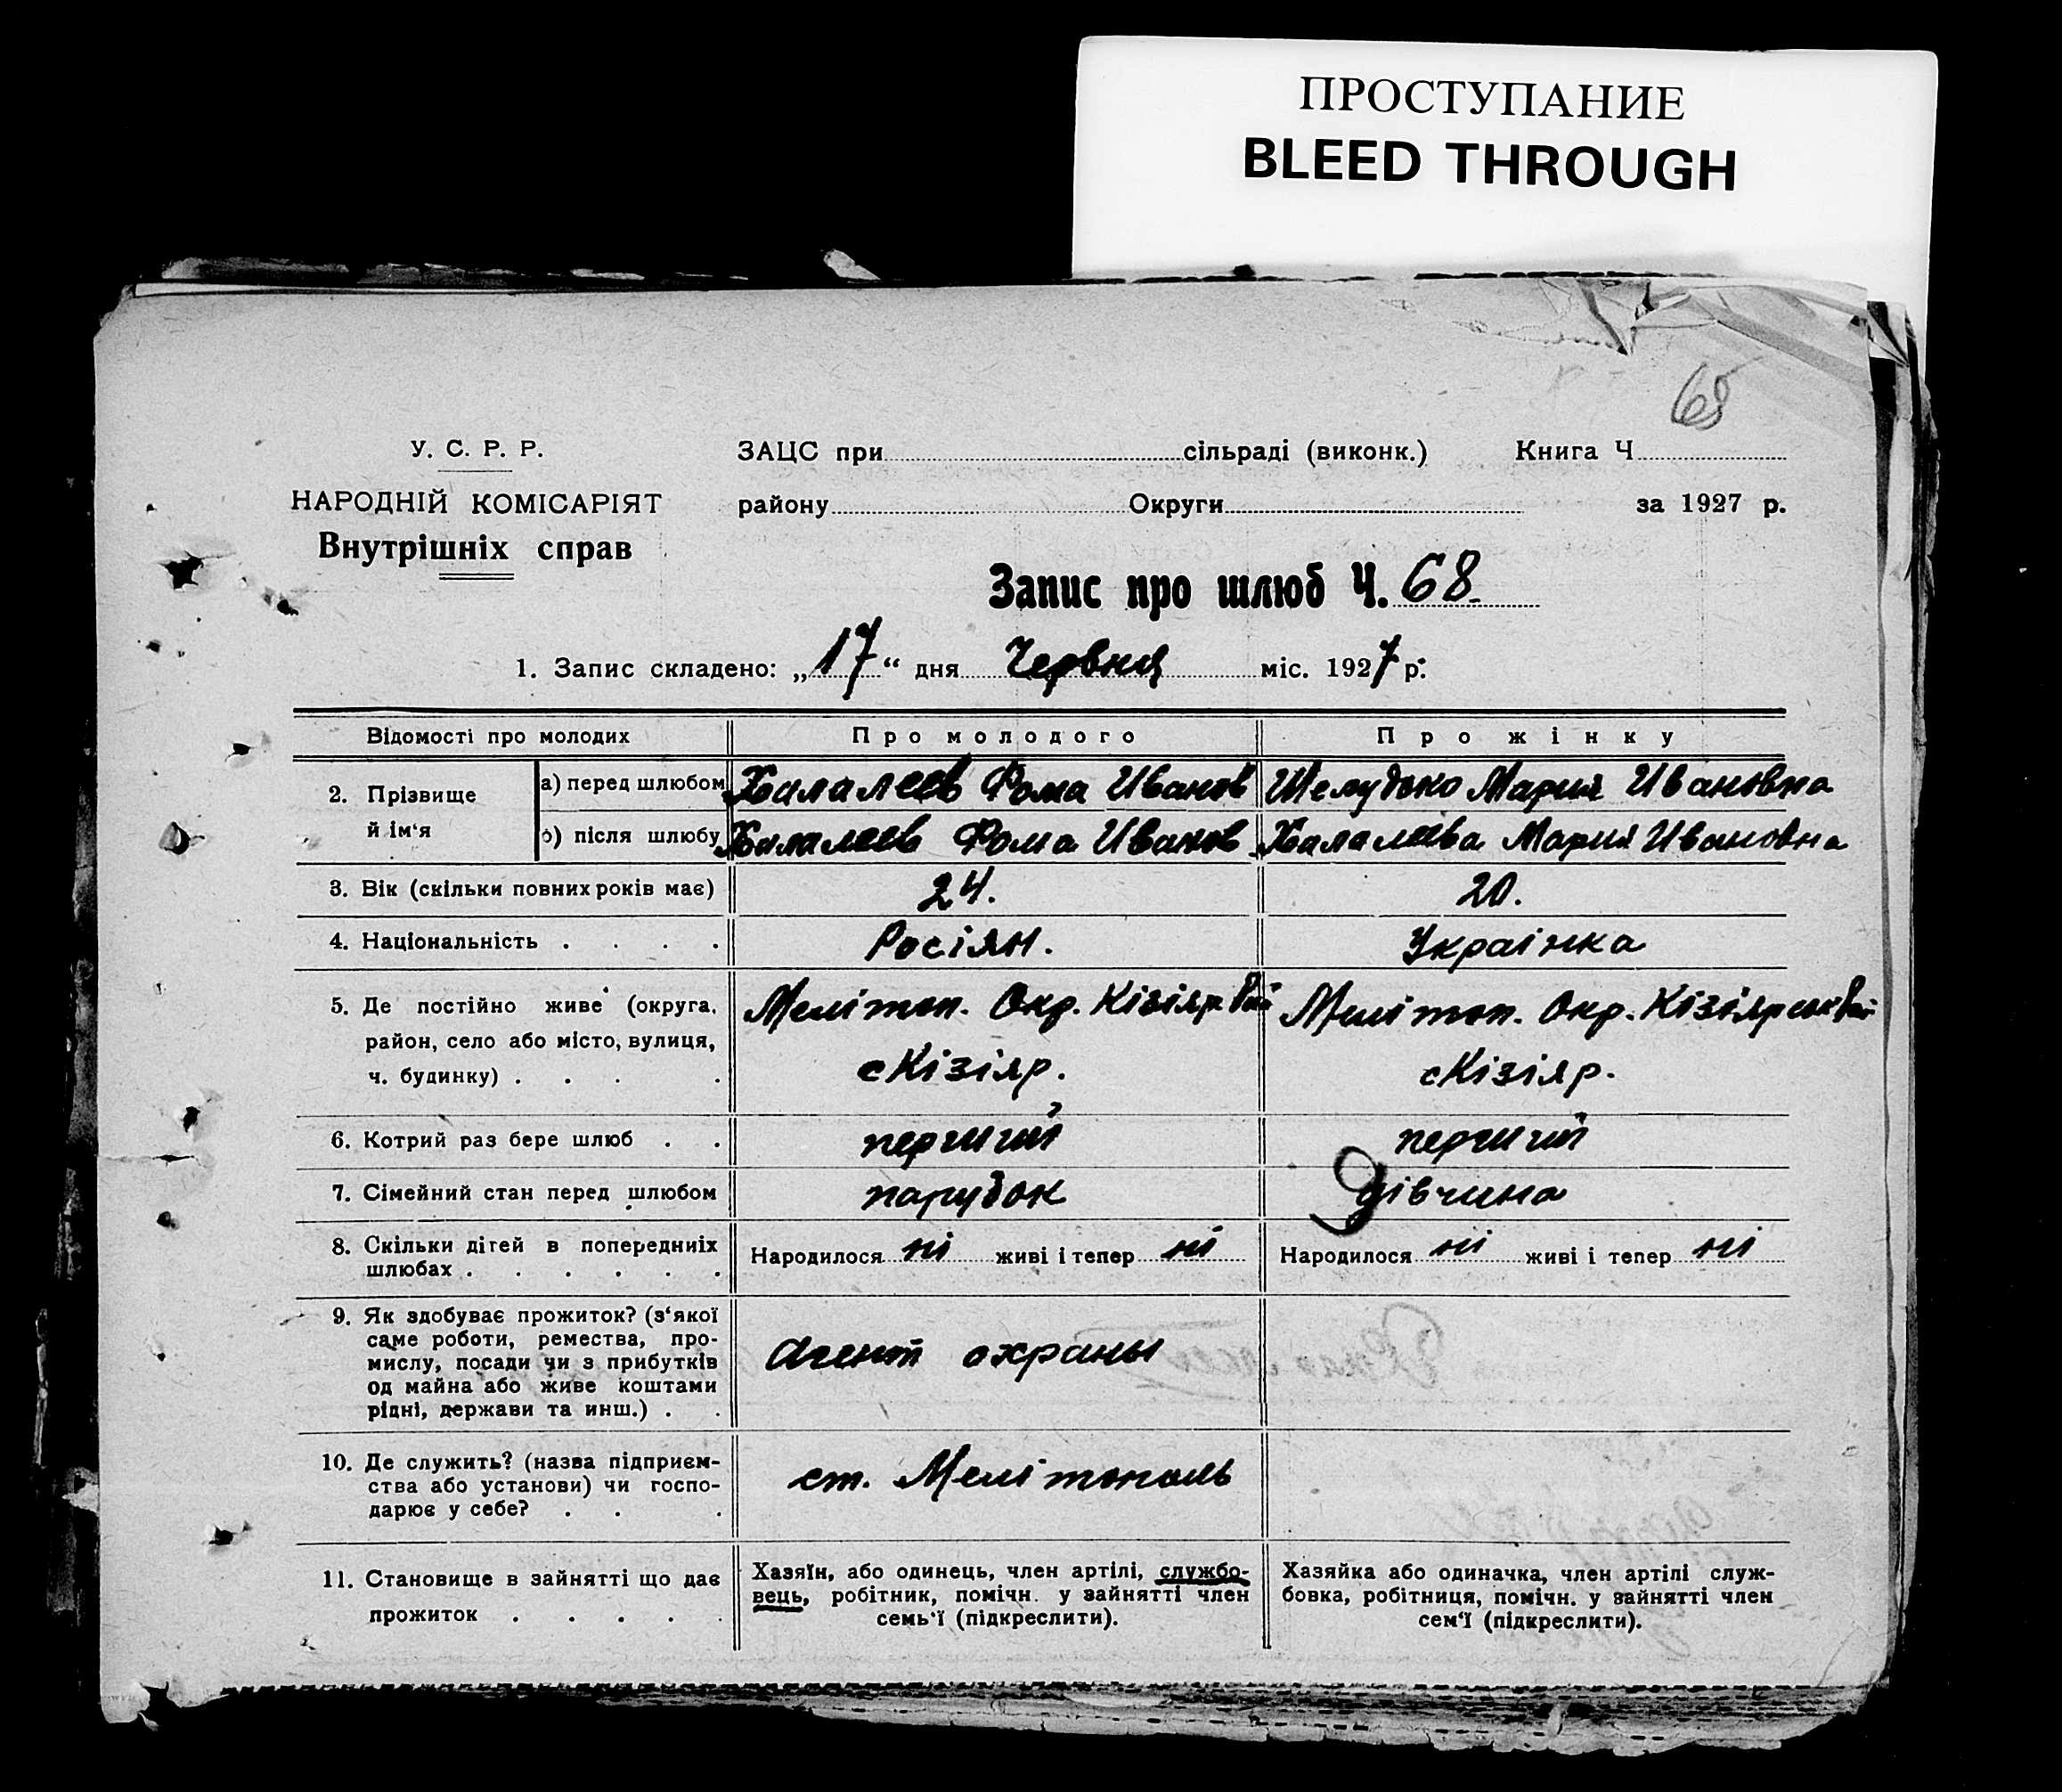 ПРОСТУПАНИЕ
BLEED THROUGH
68
У. С. Р. Р.
НАРОДНІЙ КОМІСАРІЯТ
Внутрішніх справ
ЗАЦС при сільраді (виконк.) Книга Ч
району Округи за 1927 р.
Запис про шлюб Ч. 68
1. Запис складено: „17“ дня Червня міс. 1927 р.
Відомості про молодих Про молодого Про жінку
2. Прізвище й ім‘я
а) перед шлюбом Халалеев Фома Иванов Шелудько Мария Ивановна
б) після шлюбу Халалеев Фома Иванов Халалеева Мария Ивановна
3. Вік (скільки повних років має) 24. 20.
4. Національність . . . . Росіян. Українка
5. Де постійно живе (округа,
район, село або місто, вулиця,
ч. будинку) . . . .
Мелітоп. Окр. Кізіяр. Рай
с Кізіяр.
Мелітоп. Окр. Кізіярськ Рай
с Кізіяр.
6. Котрий раз бере шлюб . . перший перший
7. Сімейний стан перед шлюбом парубок дівчина
8. Скільки дітей в попередниіх
шлюбах . . . . . .
Народилося ні живі і тепер ні Народилося ні живі і тепер ні
9. Як здобуває прожиток? (з‘якої
саме роботи, ремества, про-
мислу, посади чи з прибутків
од майна або живе коштами
рідні, держави та инш.) . .
Агент охраны
10. Де служить? (назва підприєм-
ства або установи) чи госпо-
дарює у себе? . . .
ст. Мелітополь
11. Становище в зайнятті що дає
прожиток . . . . .
Хазяїн, або одинець, член артілі, службо-
вець, робітник, помічн. у зайнятті член
семь‘ї (підкреслити).
Хазяйка або одиначка, член артілі служ-
бовка, робітниця, помічн. у зайнятті член
сем‘ї (підкреслити).